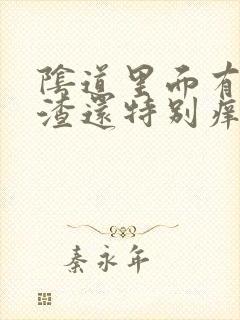 陰道里而有
渣還特别痒
秦永年